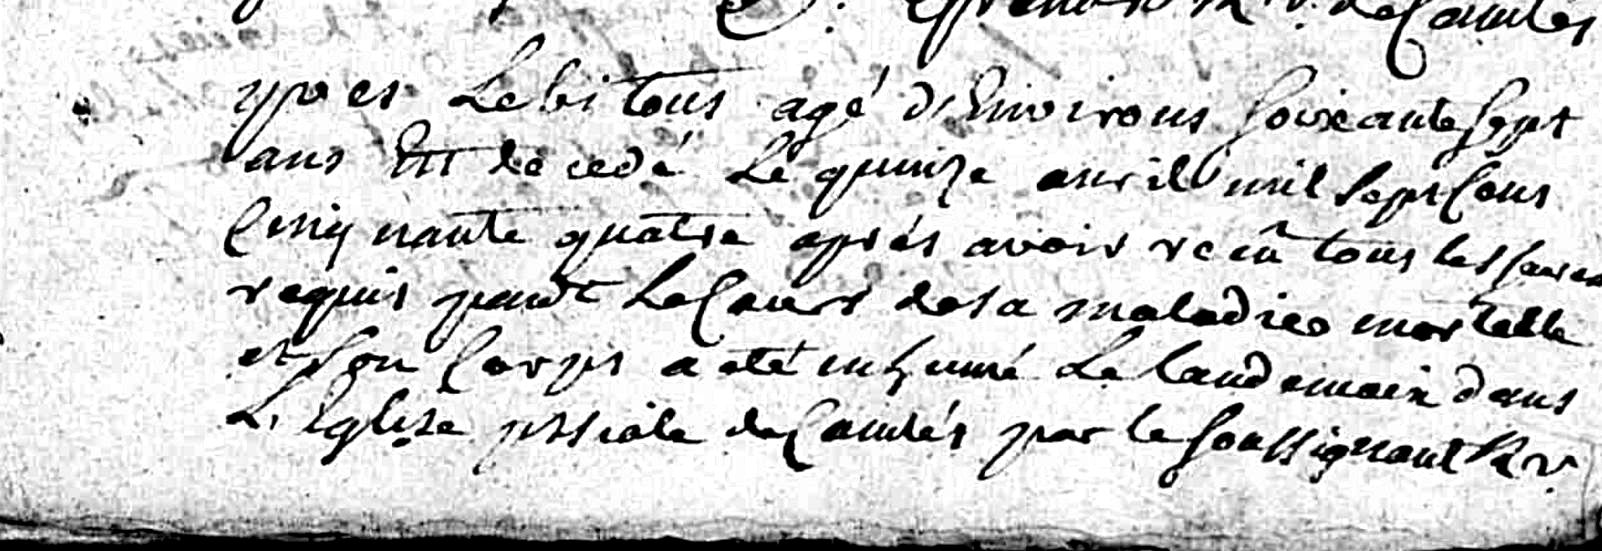 R. v. de Camlés
yves Le bitous agé d'Environs Soixante Sept
ans Est decedé Le quinze avril mil Sept Cens
Cinq nante quatre aprés avoir recû tous les
requis pandt Le Cours de sa maladiee mortelle
et Son Corps a eté inhumé Le landemain dans
L'Eglise pssiale de Camlés par le Soussignant R v.